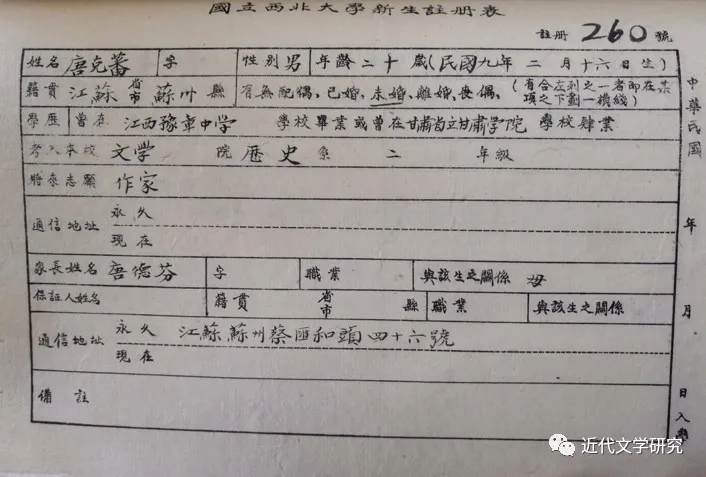 國立西北大學新生註册表
註册 260 號
姓名 唐克蕃 字 性别 男 年齡 二十 歲(民國九年 二 月十六日生)
籍貫 江蘇 省市 蘇州 縣 有無配偶、已婚、未婚、離婚、喪偶、(有合左列之一者即在某項之下劃一橫綫)
學歷 曾在 江西豫章中学 學校畢業或曾在甘肅省立甘肅学院 學校肄業
考入本校 文学 院 歷史 系 二 年級
將來志願 作家
通信地址 永久
現在
家長姓名 唐德芬 字 職業 與該生之關係 母
保証人姓名 籍貫 省市 縣 職業 與該生之關係
通信地址 永久 江蘇蘇州蔡匯和頭四十六號
現在
備註
中華民國 年 月 日入學
近代文学研究